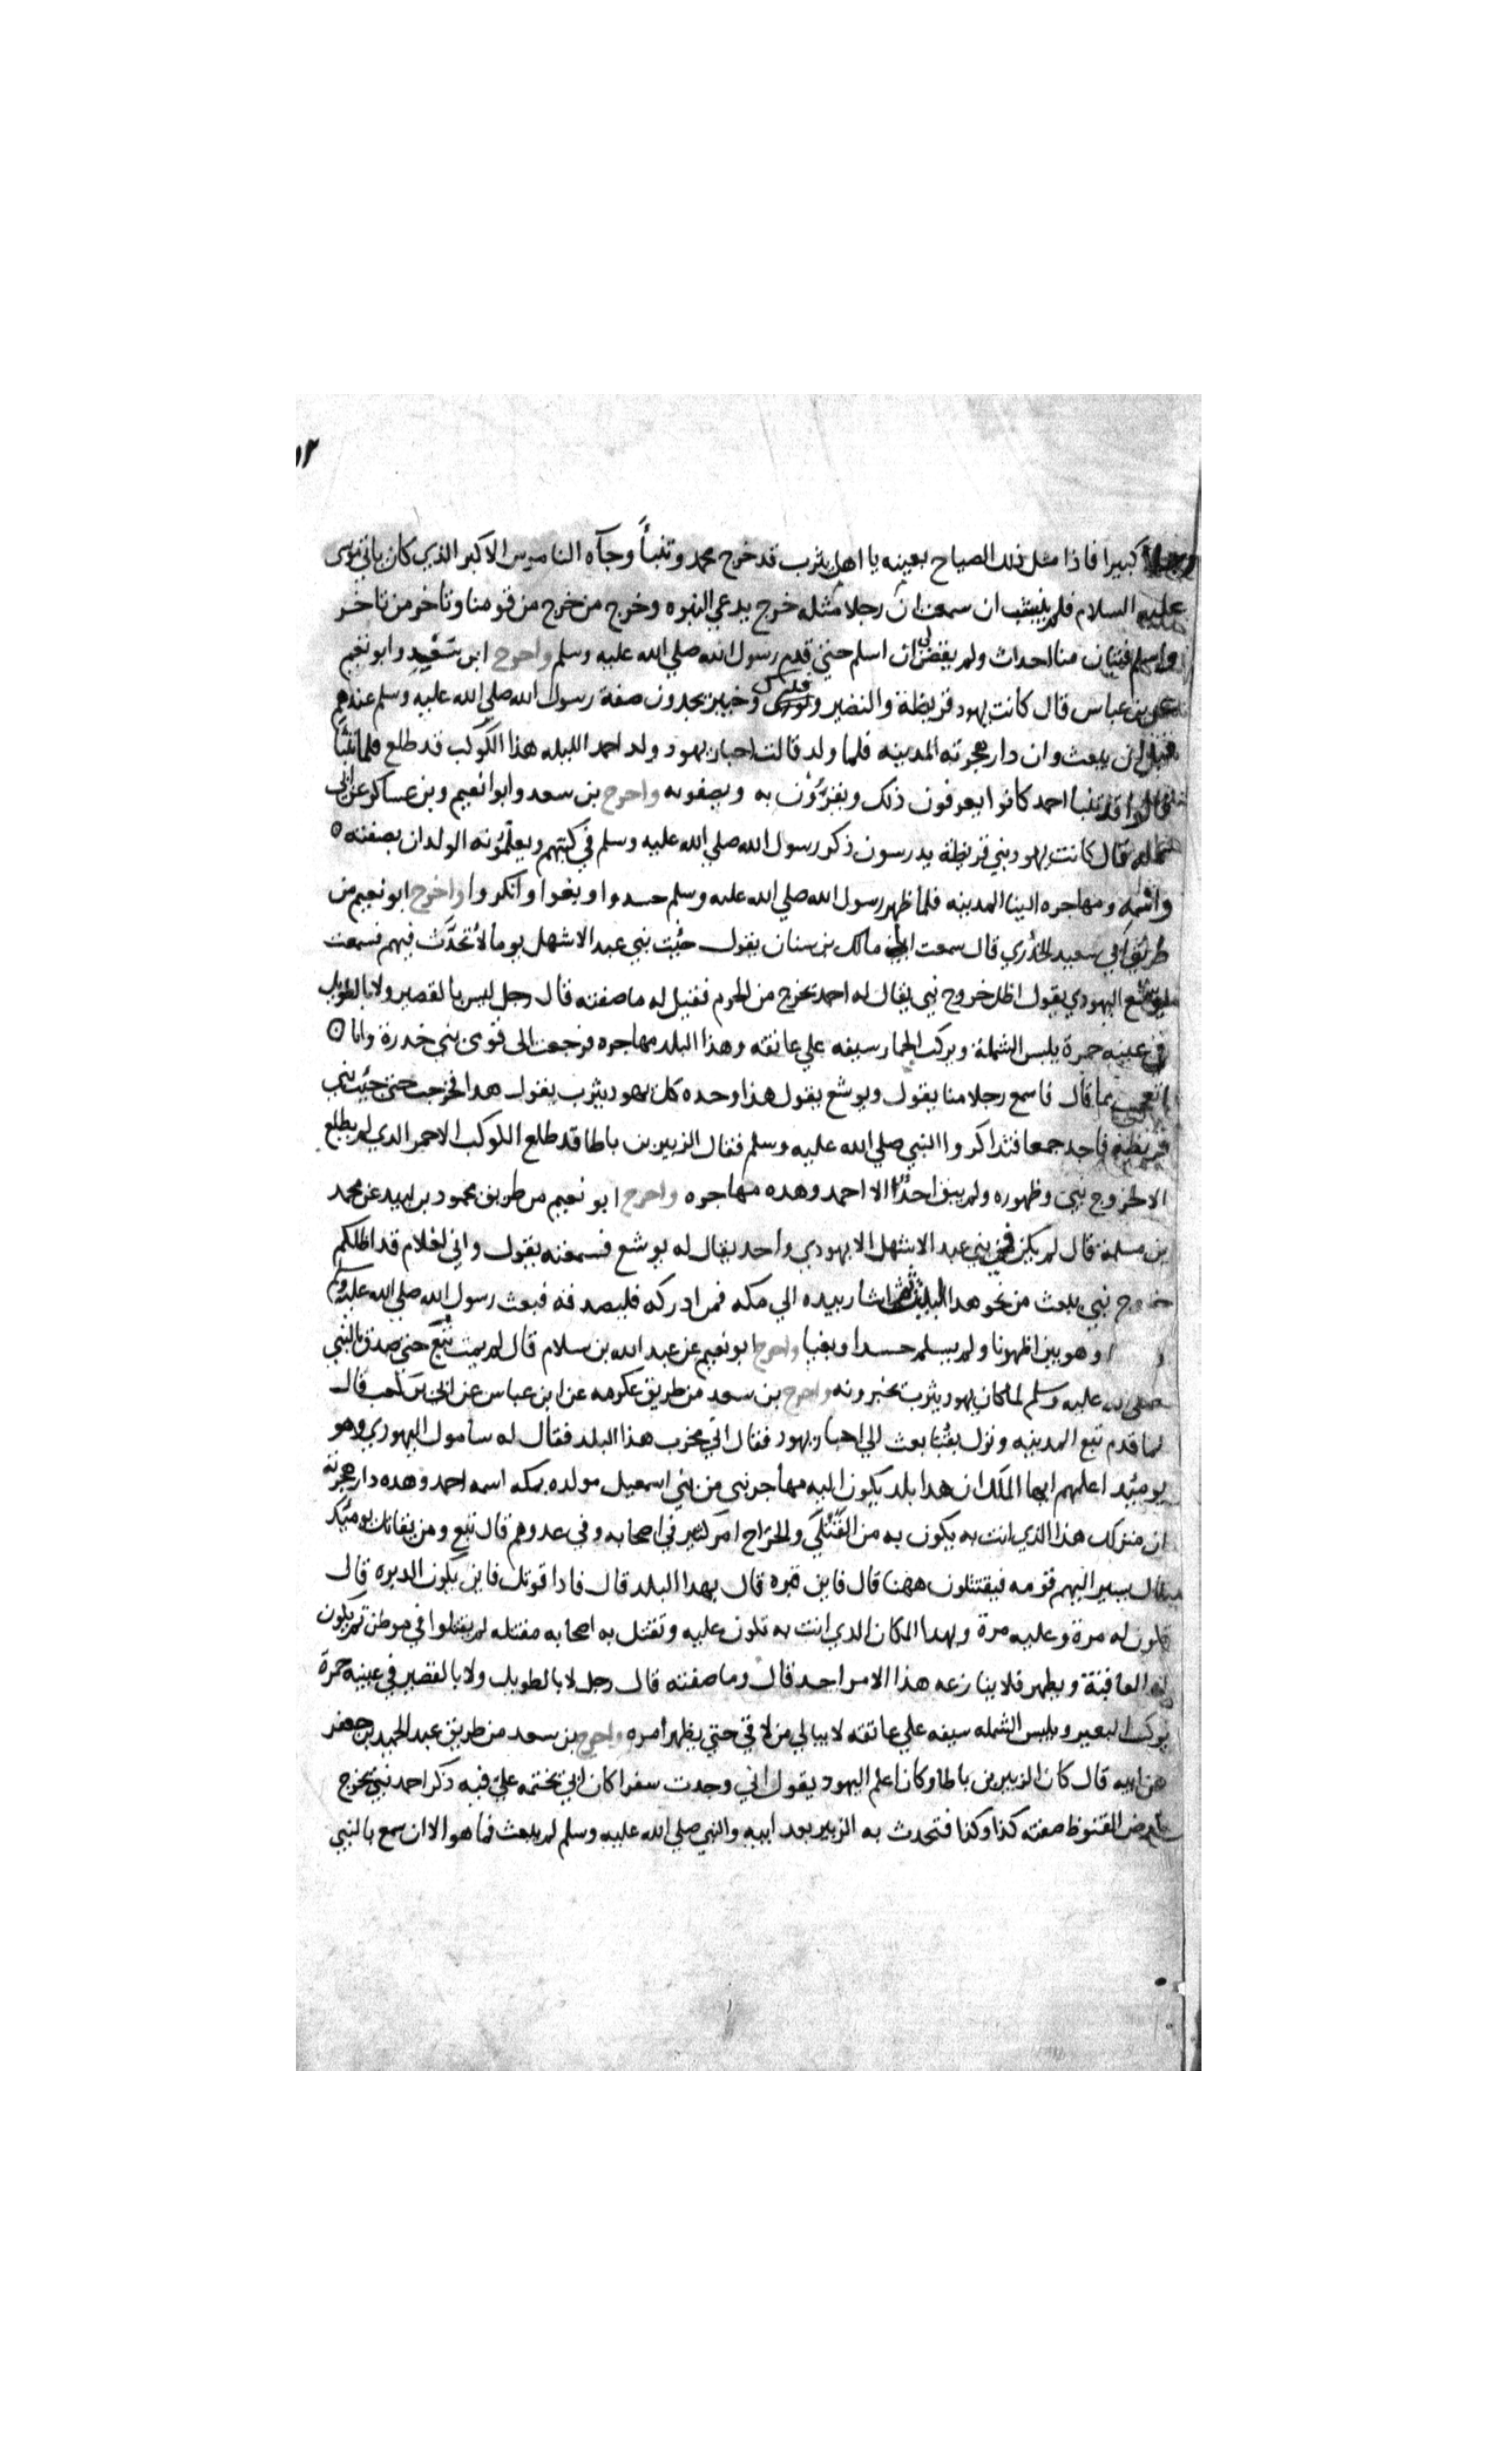 ١٢
كبيرا فاذا مثل ذلك الصياح بعينه يا اهل يثرب قد خرج محمد وتنبأ وجآه الناموس الاكبر الذي كان ياتي موسى
عليه السلام فلم ينشب ان سمعت ان رجلا مثله خرج يدعي النبوه وخرج من خرج من قومنا وتاخر من تاخر
واسلم فتيان منا احداث ولم يقض لي ان اسلم حتى قدم رسول الله صلي الله عليه وسلم واخرج ابن سعيد وابو نعيم
عن بن عباس قال كانت يهود قريظة والنضير وفدك وخيبر يجدون صفة رسول الله صلي الله عليه وسلم عندهم
قبل ان يبعث وان دار هجرته المدينه فلما ولد قالت احبار يهود ولد احمد الليله هذا الكوكب قد طلع فلما تنبأ
قالوا قد تنبا احمد كانوا يعرفون ذلك ويقرؤن به ويصفونه واخرج بن سعد وابوا نعيم وبن عساكر عن ابي
نمله قال كانت يهود بني قريظة يدرسون ذكر رسول الله صلي الله عليه وسلم في كتبهم ويعلمونه الولدان بصفته
واسمه ومهاجره الينا المدينه فلما ظهر رسول الله صلي الله عليه وسلم حسدوا وبغوا وانكروا واخرج ابو نعيم من
طريق ابي سعيد الخدري قال سمعت ابي مالك بن سنان يقول جئت بني عبد الاشهل يوما لاتحدث فيهم فسمعت
يوشع اليهودي يقول اظل خروج نبي يقال له احمد يخرج من الحرم فقيل له ما صفته قال رجل ليس بالقصير ولا بالطويل
في عينيه حمرة يلبس الشملة ويركب الحمار سيفه علي عاتقه وهذا البلد مهاجره فرجعت الى قومى بني خدرة وانا
اتعجب بما قال فاسمع رجلا منا يقول ويوشع يقول هذا وحده كل يهود يثرب يقول هدا فخرجت حتى جئت بني
قريظة فاجد جمعا فتذاكروا النبي صلي الله عليه وسلم فقال الزبير بن باطا قد طلع الكوكب الاحمر الدي لم يطلع
الا لخروج نبي وظهوره ولم يبق احدا الا احمد وهده مهاجره واخرج ابو نعيم من طريق محمود بن لبيد عن محمد
بن مسلمة قال لم يكن في بني عبد الاشهل الا يهودي واحد يقال له يوشع فسمعته يقول واني لغلام قد اظلكم
خروج نبي يبعث من نحو هدا البيت ثم اشار بيده الي مكه فمن ادركه فليصدقه فبعث رسول الله صلي الله عليه وسلم
وهو بين اظهرنا ولم يسلم حسدا وبغيا واخرج ابو نعيم عن عبد الله بن سلام قال لم يمت تبع حتى صدق بالنبي
صلي الله عليه وسلم لما كان يهود يثرب يخبرونه واخرج بن سعد من طريق عكرمه عن ابن عباس عن ابي بن كعب قال
لما قدم تبع المدينه ونزل بقبا بعث الي احبار يهود فقال اني مخرب هذا البلد فقال له سامول اليهودي وهو
يومئد اعلمهم ايها الملك ان هدا بلد يكون اليه مهاجر نبي من بني اسمعيل مولده بمكه اسمه احمد وهده دار هجرته
ان منزلك هذا الذي انت به يكون به من القتلي والجراح امر كثير في اصحابه وفي عدوهم قال تبع ومن يقاتله يومئد
قال يسير اليهم قومه فيقتتلون ههنا قال فاين قبره قال بهدا البلد قال فادا قوتل فاين يكون الدبره قال
تكون له مرة وعليه مرة وبهدا المكان الدي انت به تكون عليه وتقتل به اصحابه مقتله لم يقتلوا في موطن ثم يكون
له العاقبة ويظهر فلا ينازعه هذا الامر احد قال وما صفته قال رجل لا بالطويل ولا بالقصير في عينيه حمرة
يركب البعير ويلبس الشمله سيفه علي عاتقه لا يبالي من لاقي حتي يظهر امره واخرج بن سعد من طريق عبد الحميد بن جعفر
عن ابيه قال كان الزبير بن باطا وكان اعلم اليهود يقول اني وجدت سفرا كان ابي يختمه علي فيه ذكر احمد نبي يخرج
بارض القنوظ صفته كذا وكذا فتحدث به الزبير بعد ابيه والنبي صلي الله عليه وسلم لم يبعث فما هو الا ان سمع بالنبي